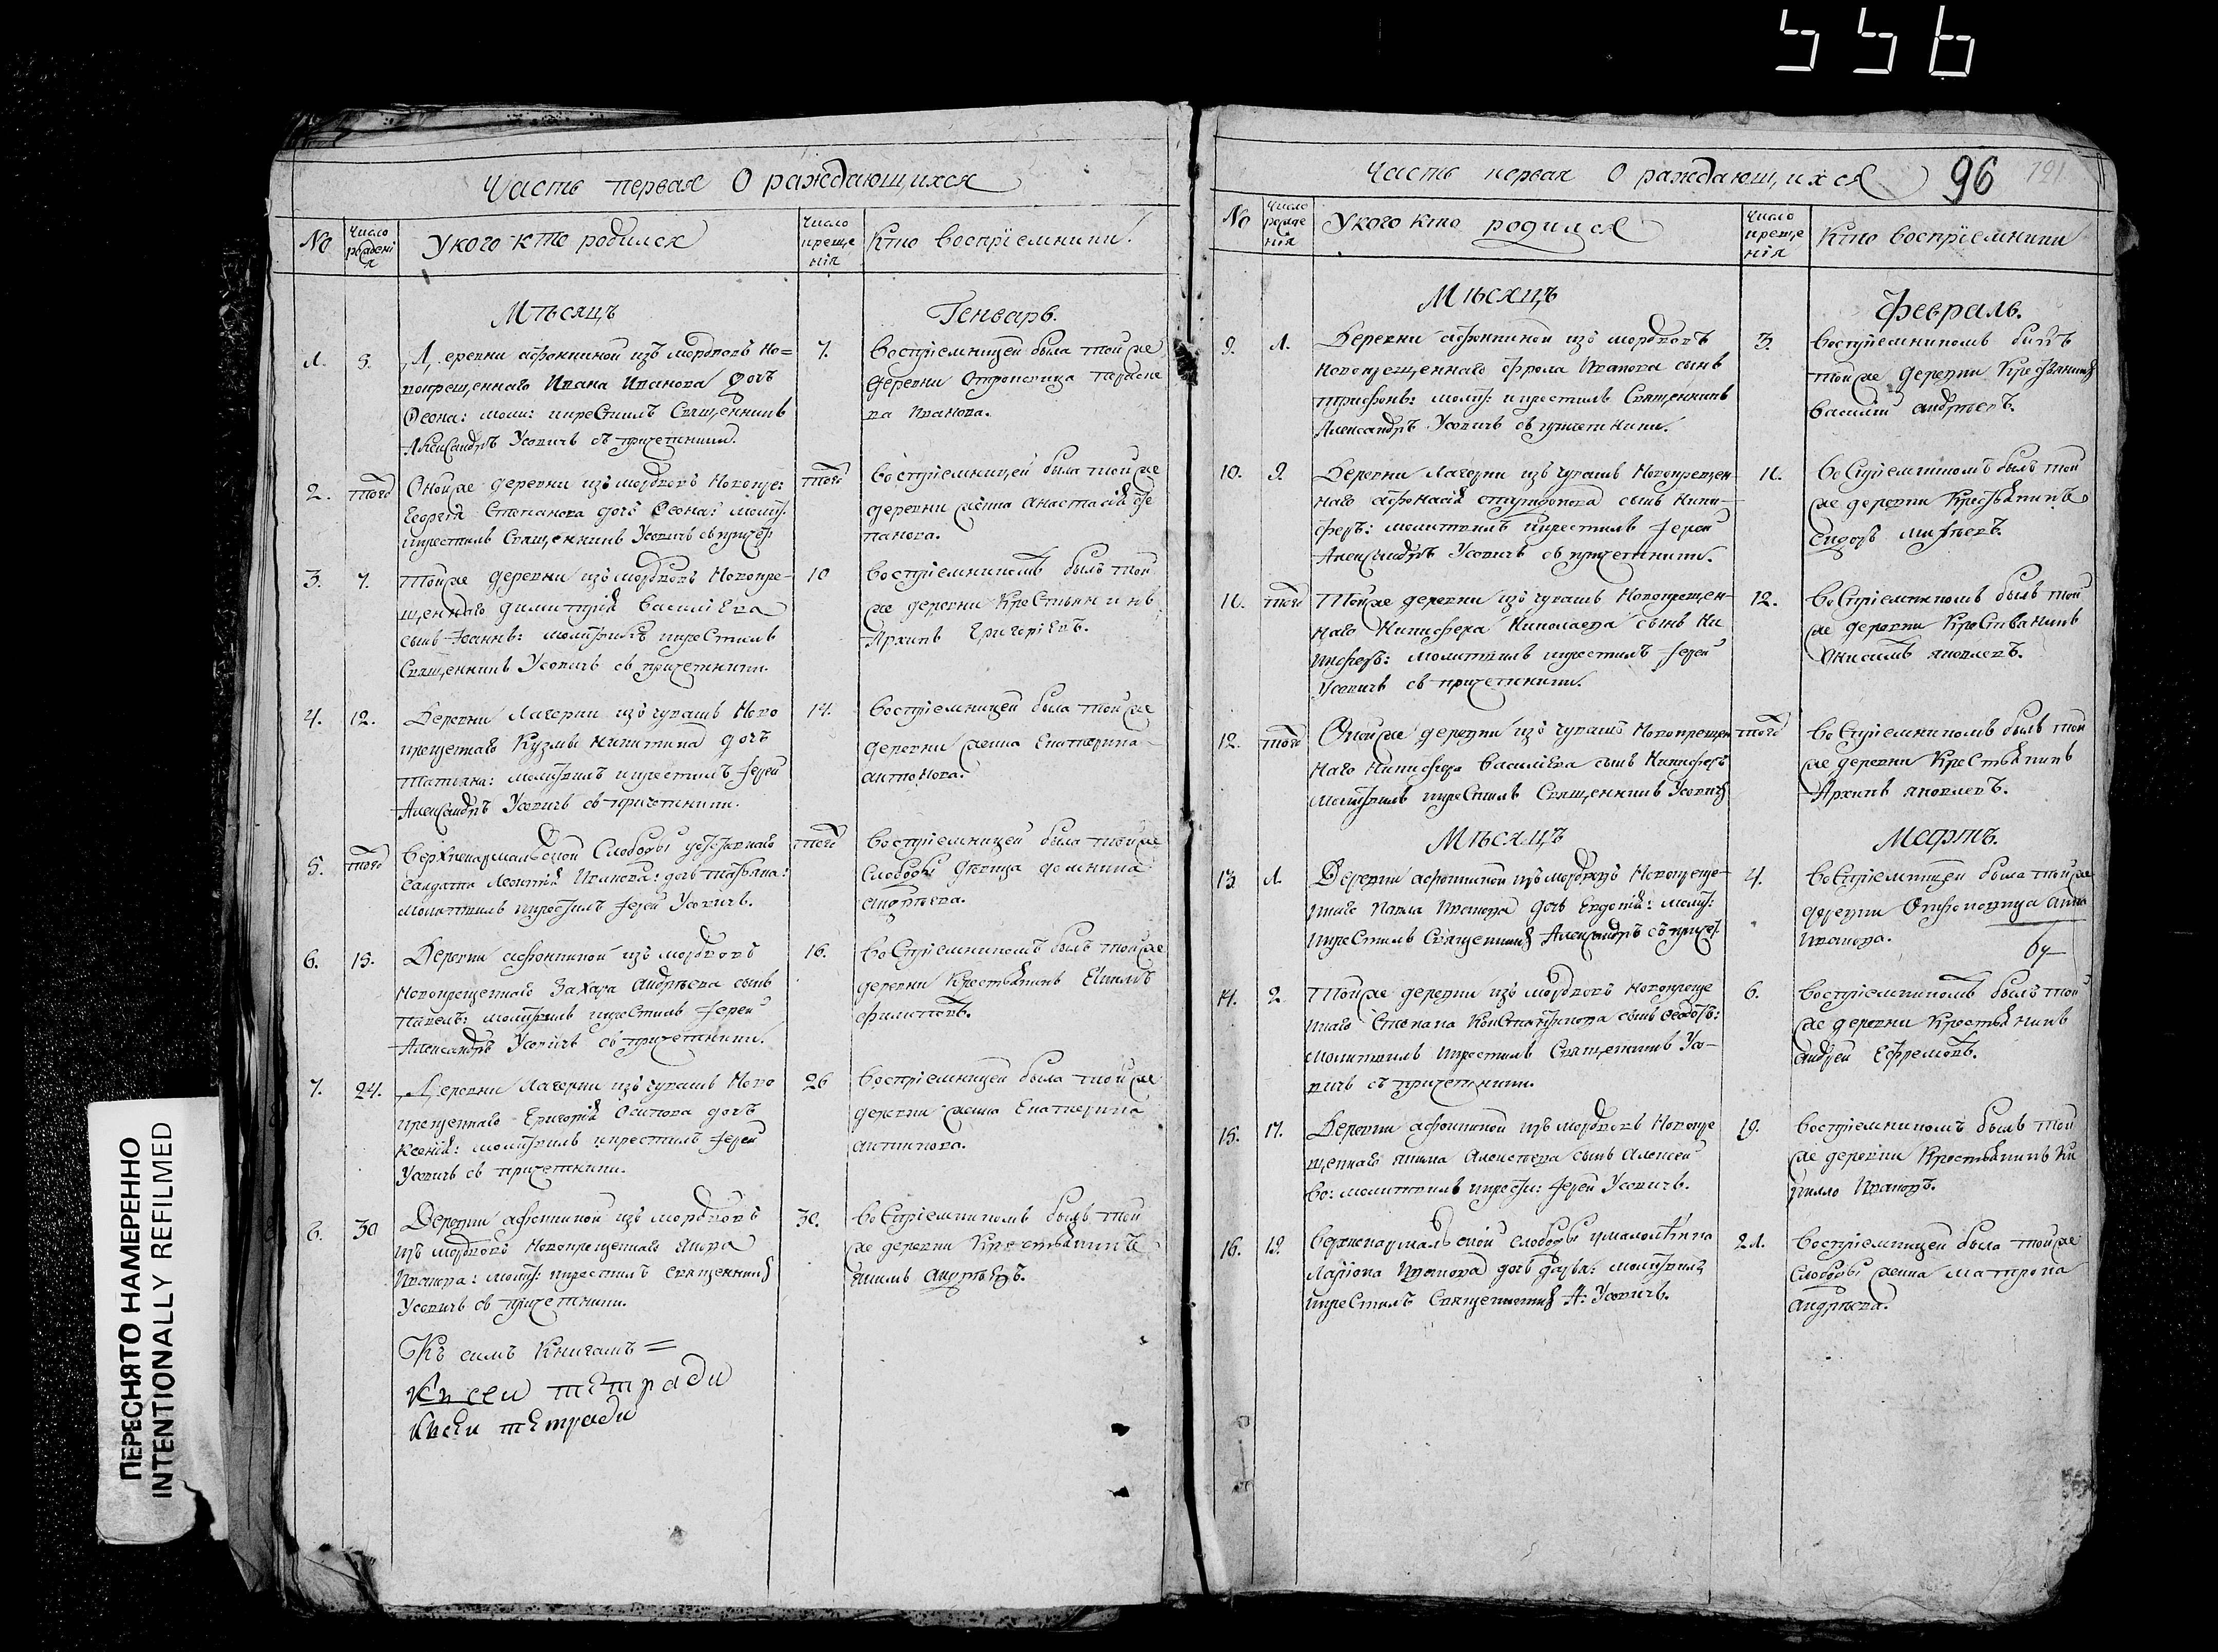 556
Часть первая О раждающихся
№
Число рождені я
У кого кто родился
Число креще нія
Кто воспріемники
Мѣсяцъ
Генварь.
1. 5. Деревни Афонкиной изъ мордвовъ но=
вокрещеннаго Ивана Иванова дочь
Ѳеона: моли: и крестилъ Священникъ
Александръ Усовичь съ причетники.
7. Воспріемницей была той же
деревни Отроковица Параске
ва Иванова.
2. того Оной же деревни изъ мордвовъ новокре:
Георгія Степанова дочь Ѳеона: молит:
и крестилъ Священникъ Усовичь съ причет:
того Воспріемницей была той же
деревни жинка Анастасія Сте
панова.
3. 7. Той же деревни изъ мордвовъ новокре-
щеннаго Димитрія Василіева
сынъ Іоаннъ: молитвилъ и крестилъ
Священникъ Усовичь съ причетники.
10 Воспріемникомъ былъ той
же деревни Крестьянинъ
Архипъ Григоріевъ.
4. 12. Деревни Лагерки изъ чувашъ ново
крещеннаго Кузмы Никитина дочь
Татіяна: молитвилъ и крестилъ Іерей
Александръ Усовичь съ причетники.
14. Воспріемницей была той же
деревни жинка Екатерина
Антонова.
5. того Верхнекармальской Слободы отставнаго
Салдата Леонтія Иванова: дочь Татьяна:
молитвилъ и крестилъ Іерей Усовичь.
того Воспріемницей была той же
Слободы Девица Домникіа
Андрѣева.
6. 15. Деревни Афонкиной изъ мордвовъ
новокрещеннаго Захара Андрѣева сынъ
Павелъ: молитвилъ и крестилъ Іерей
Александръ Усовичь съ причетники.
16. Воспріемникомъ былъ той же
деревни Крестьянинъ Екимъ
Филиповъ.
7. 24. Деревни Лагерки изъ чувашъ ново
крещеннаго Григорія Осипова дочь
Ксенія: молитвилъ и крестилъ Іерей
Усовичь съ причетники.
26 Воспріемницей была той же
деревни жинка Екатерина
Антипова.
8. 30 Деревни Афонкиной изъ мордвовъ
изъ мордвовъ новокрещеннаго
Иванова: молит: и крестилъ Священникъ
Усовичь съ причетники.
30. Воспріемникомъ былъ той
же деревни Крестьянинъ
Андрѣевъ.
Къ симъ Книгамъ =
Къ сеи тетради
Къ сеи тетради
Часть первая О раждающихся
96
121
№
Число рожде нія
У кого кто родился
Число креще нія
Кто воспріемники
Мѣсяцъ
Февраль.
9. 1. Деревни Афонкиной изъ мордвовъ
новокрещеннаго Фрола Иванова сынъ
Трифонъ: молит: и крестилъ Священникъ
Александръ Усовичь съ причетники.
3. Воспріемникомъ былъ
той же деревни Крестьянинъ
Василій Андрѣевъ.
10. 9. Деревни Лагерки изъ чувашъ новокрещен-
наго Афонасія сынъ Ники-
феръ: молитвилъ и крестилъ Іерей
Александръ Усовичь съ причетники.
11. Воспріемникомъ былъ той
же деревни Крестьянинъ
Сидоръ
11. того Той же деревни изъ чувашъ новокрещен-
наго Никифера Николаева сынъ Ни
киферъ: молитвилъ и крестилъ Іерей
Усовичь съ причетники.
12. Воспріемникомъ былъ той
же деревни Крестьянинъ
Онисимъ Яковлевъ.
12. того Оной же деревни изъ чувашъ новокрещен
наго Никифера Василіева сынъ Никиферъ
молитвилъ и крестилъ Священникъ Усовичь
того Воспріемникомъ былъ той
же деревни Крестьянинъ
Архипъ Яковлевъ.
Мѣсяцъ
Мартъ.
13. 1. Деревни Афонкиной изъ мордвовъ новокреще-
ннаго Павла Иванова дочь Евдокія: молит:
и крестилъ Священникъ Александръ съ причет:
4. Воспріемницей была той же
деревни Отроковица Анна
Иванова.
14. 2. Той же деревни изъ мордвовъ новокреще
ннаго Степана Константинова сынъ Ѳедотъ:
молитвилъ и крестилъ Священникъ Усо-
вичь съ причетники.
6. Воспріемникомъ былъ той
же деревни Крестьянинъ
Андрей Ефремовъ.
15. 17. Деревни Афонкиной изъ мордвовъ новокре
щеннаго Якима Алексѣева сынъ Алексей
во: молитвилъ и крести: Іерей Усовичь.
19. Воспріемникомъ былъ той
же деревни Крестьянинъ Ки
рилло Ивановъ.
16. 19. Верхнекармальской слободы
Ларіона Иванова дочь Дарья: молитвилъ
и крестилъ Священникъ А: Усовичь.
21. Воспріемницей была той же
Слободы жинка Матрона
Андрѣева.
ПЕРЕСНЯТО НАМЕРЕННО
INTENTIONALLY REFILMED